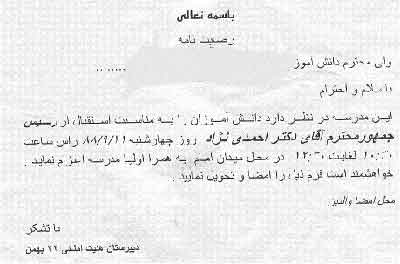 باسمه تعالی
رضایت نامه
ولی محترم دانش آموز ..........
با سلام و احترام
این مدرسه در نظر دارد دانش آموزان را به مناسبت استقبال از رئیس
جمهور محترم آقای دکتر احمدی نژاد روز چهارشنبه ۸۸/۹/۱۱ راس ساعت
۱۰:۳۰ لغایت ۱۲:۳۰ در محل میدان امام به همراه اولیا مدرسه اعزام نماید .
خواهشمند است فرم ذیل را امضا و تحویل نمایید .
محل امضا والدین
با تشکر
دبیرستان هیئت امنایی ۲۲ بهمن